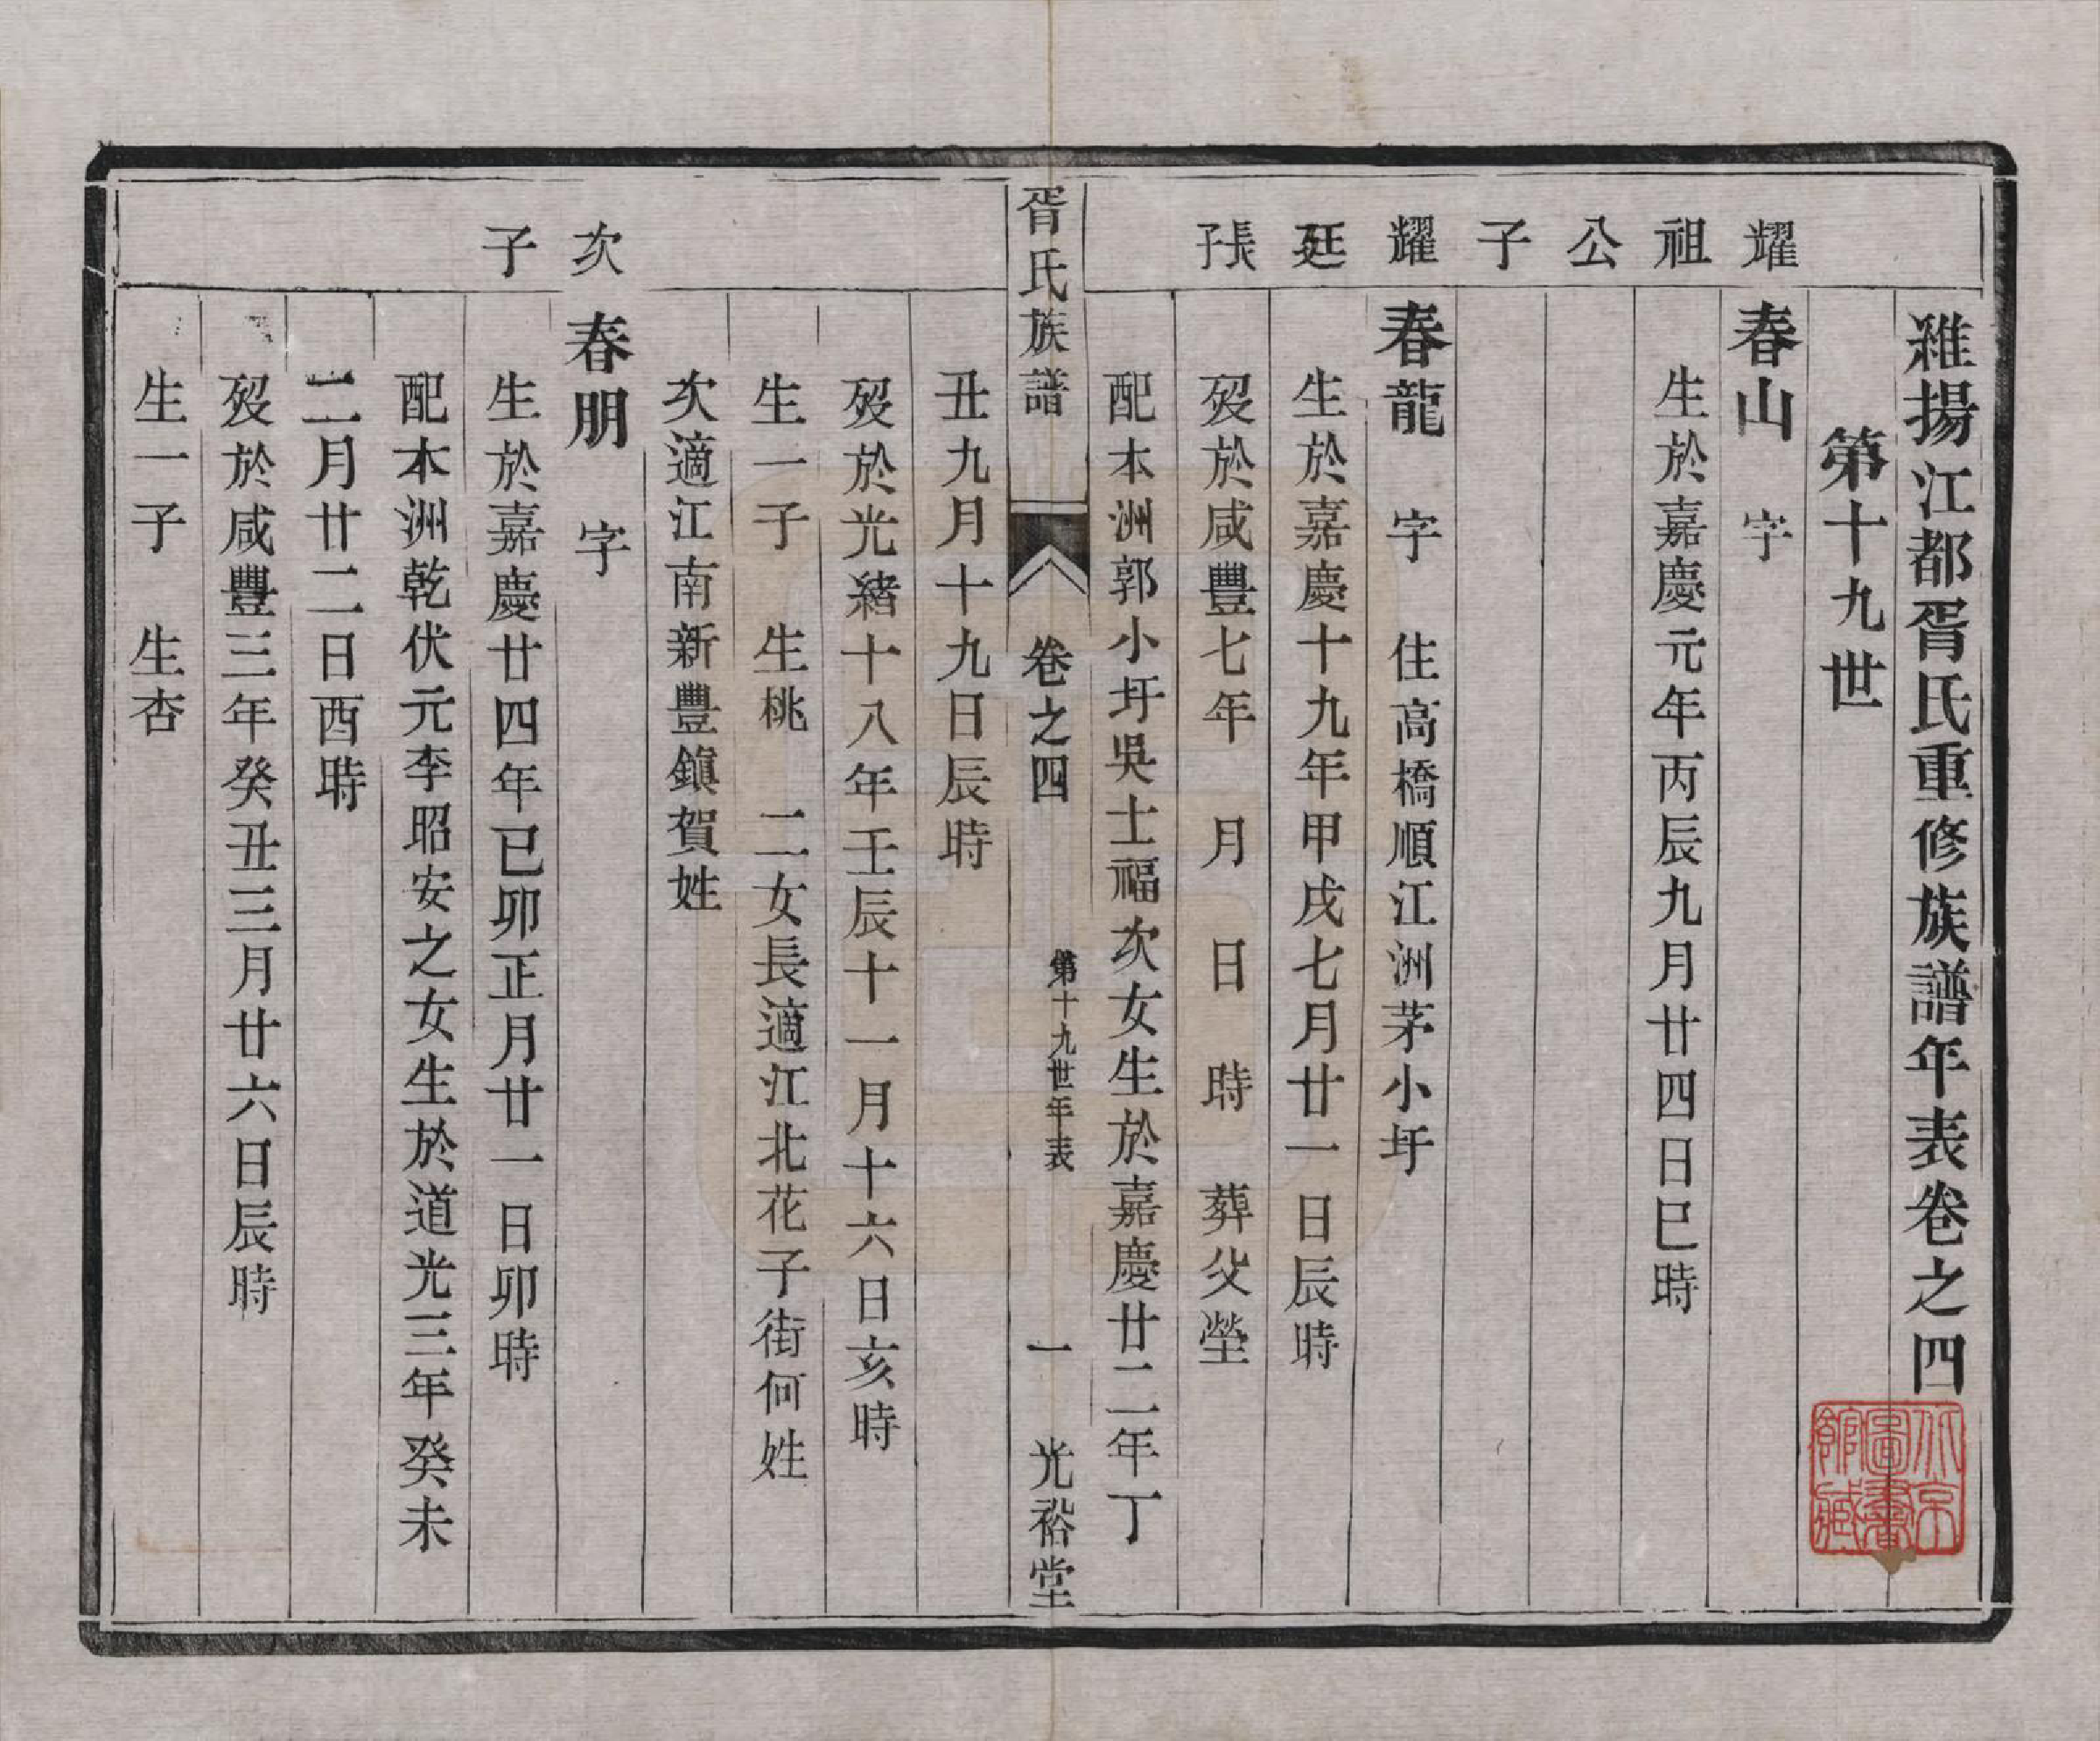 維揚江都胥氏重修族譜年表卷之四
第十九世
耀祖公子
春山　字
生於嘉慶元年丙辰九月廿四日巳時
耀廷長子
春龍　字　住高橋順江洲茅小圩
生於嘉慶十九年甲戌七月廿一日辰時
歿於咸豐七年　月　日　時　葬父塋
配本洲郭小圩吳士福次女生於嘉慶廿二年丁
胥氏族譜　卷之四　第十九世年表　一　光裕堂
丑九月十九日辰時
歿於光緒十八年壬辰十一月十六日亥時
生一子　生桃　二女長適江北花子街何姓
次適江南新豐鎭賀姓
次子
春朋　字
生於嘉慶廿四年已卯正月廿一日卯時
配本洲乾伏元李昭安之女生於道光三年癸未
二月廿二日酉時
歿於咸豐三年癸丑三月廿六日辰時
生一子　生杏
北京圖書館藏